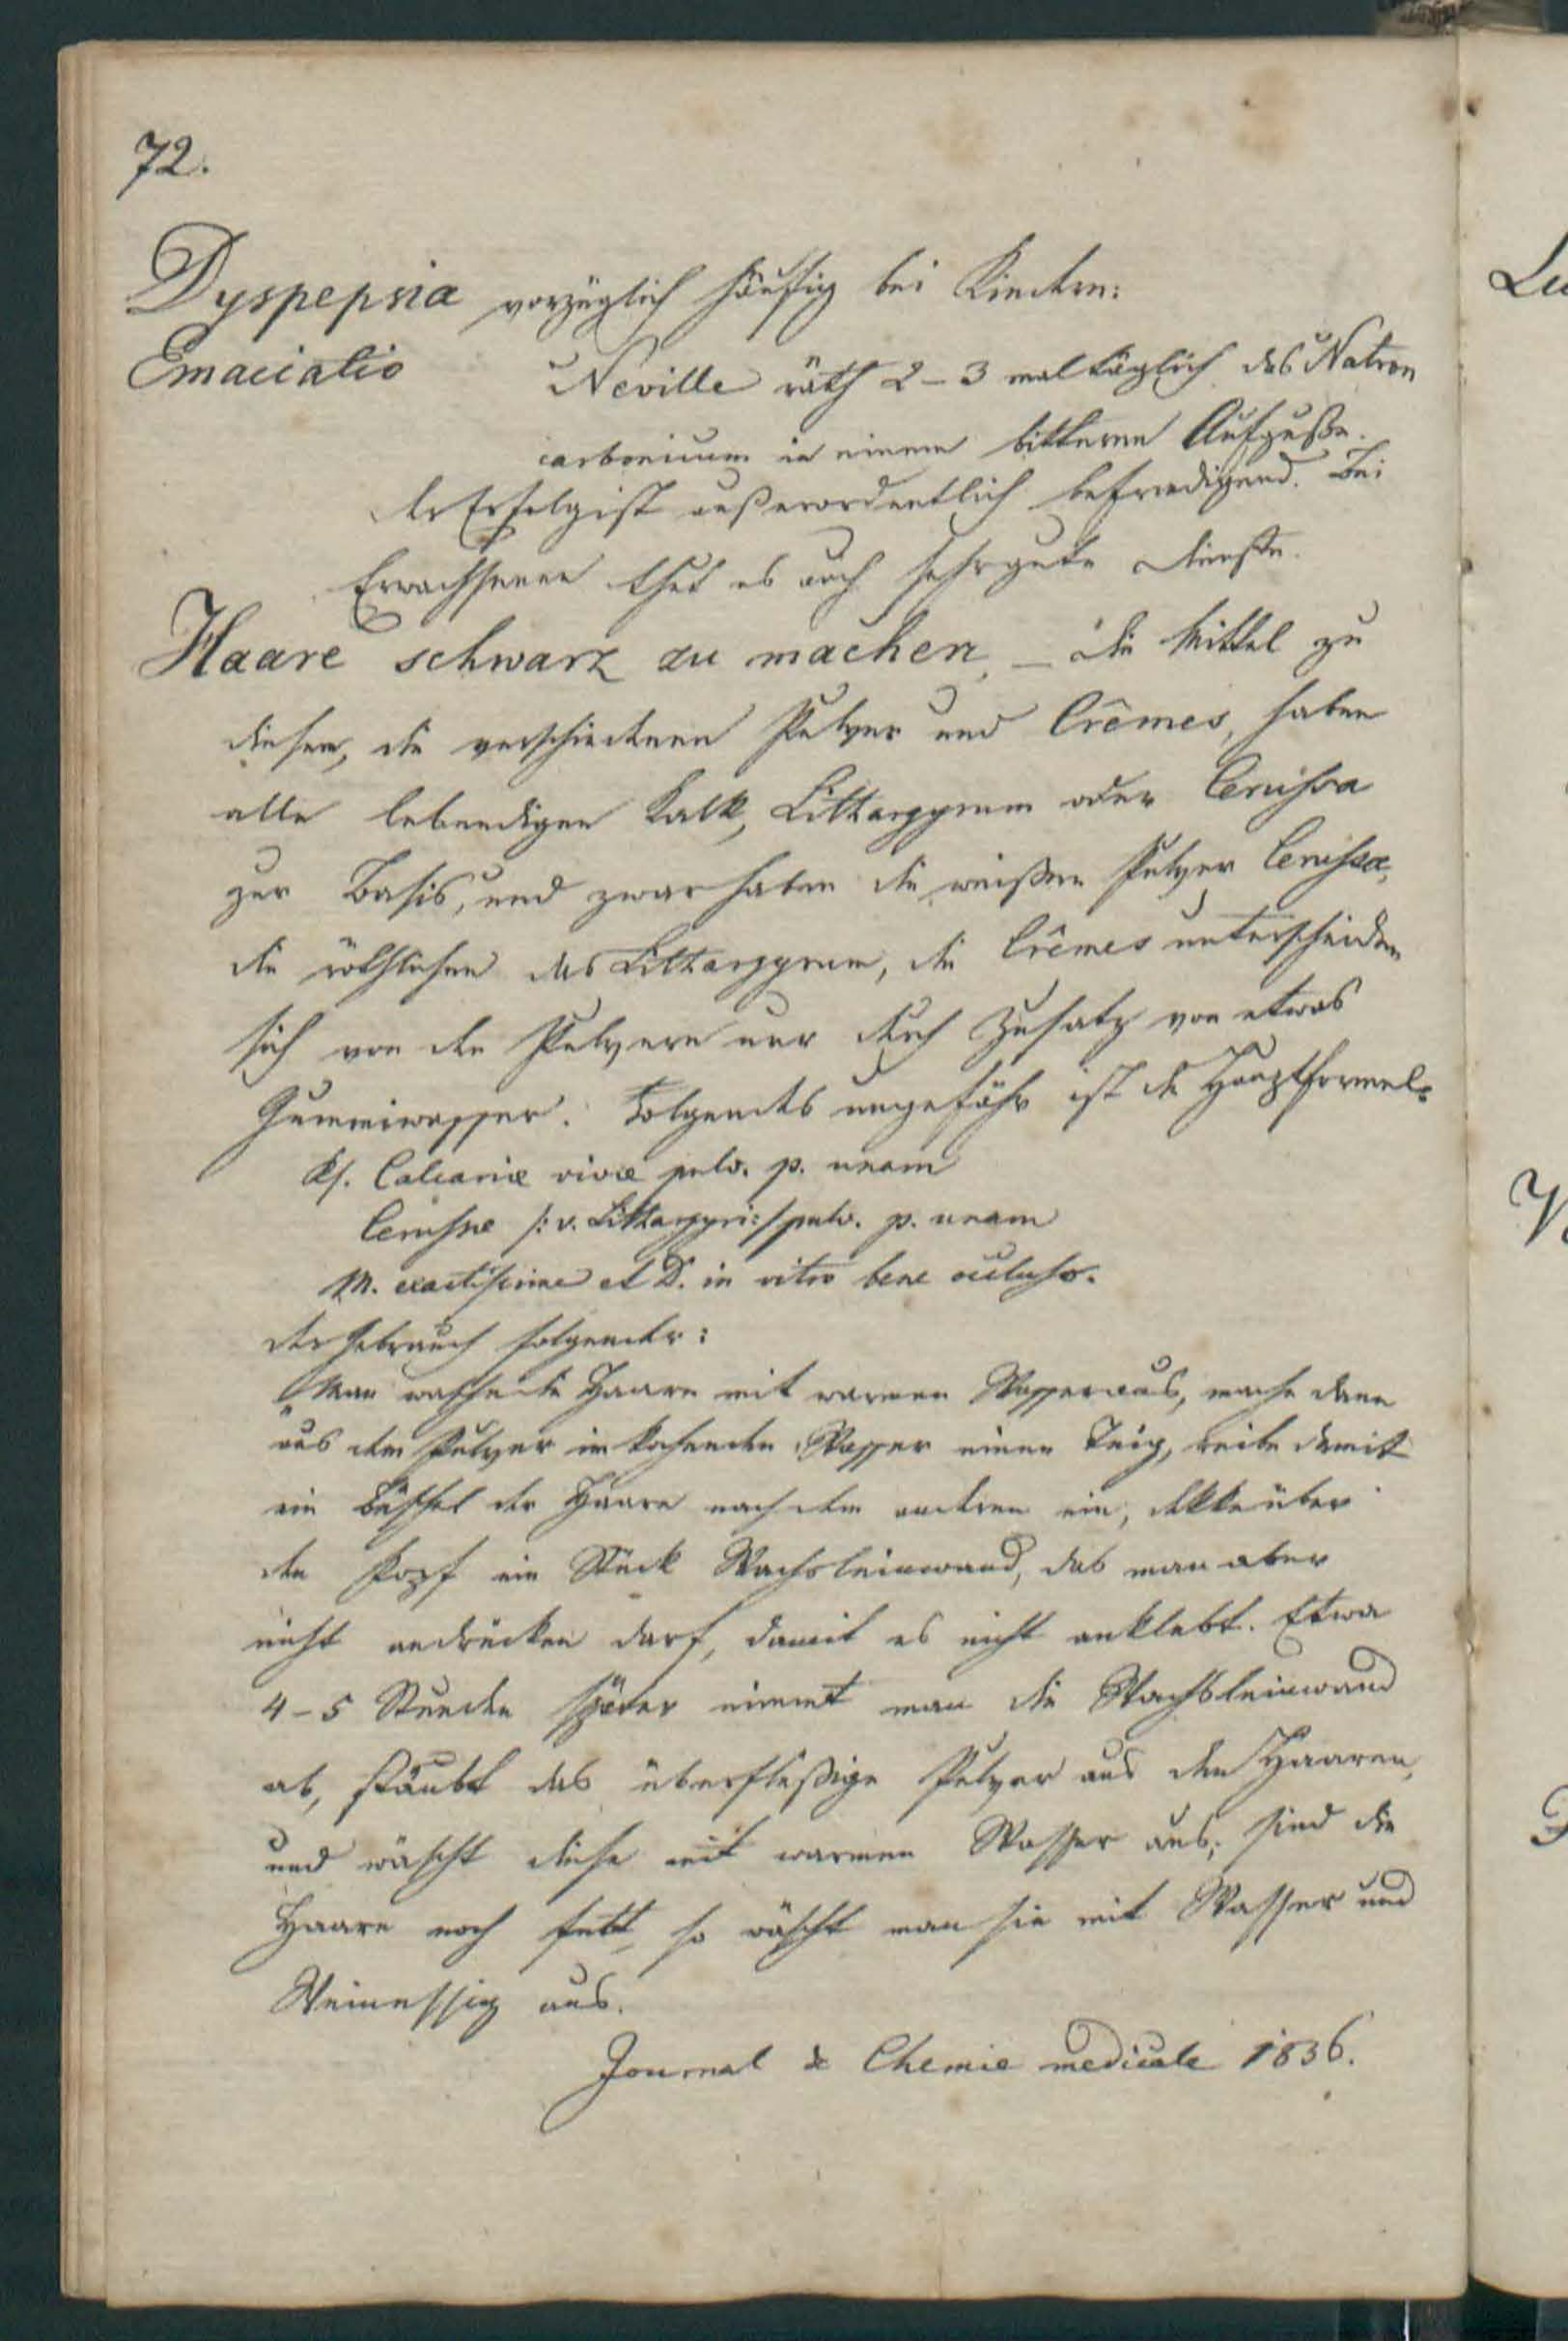 72.
Dyspepsia vorzüglich häufig bei Kindern:
Emaciatio Neville räth 2-3 mal täglich das Natron
carbonicum in einem bitteren Aufguße.
der Erfolg ist außerordentlich befriedigend. Bei
Erwachsenen thut es auch sehr gute Dienste.
Haare schwarz zu machen, – die Mittel zu
diesem, die verschiedenen Pulver und Crêmes, haben
alle lebendigen Kalk, Littargyrum oder Cerussa
zur Basis, und zwar haben die weißen Pulver Cerussa,
die röthlichen das Littargyrum, die Crêmes unterscheiden
sich von den Pulvern nur durch Zusatz von etwas
Gummiwasser. Folgendes ungefähr ist die Hauptformel:
Rp. Calcariæ vivæ pulv. p. unam
Cerussae /: v. Littargyri :/ pulv. p. unam
M. exactissime et D. in vitro bene occluso.
der Gebrauch folgender:
Man wasche die Haare mit warmen Wasser aus, mache dann
aus dem Pulver im kochenden Wasser einen Teig, reibe damit
ein Büschel der Haare nach dem anderen ein, dekke über
den Kopf ein Stück Wachsleinwand, das man aber
nicht andrücken darf, damit es nicht anklebt. Etwa
4-5 Stunden später nimmt man die Wachsleinwand
ab, stäubt das überflüßige Pulver aus den Haaren,
und wäscht diese mit warmen Wasser aus; sind die
Haare noch fett, so wäscht man sie mit Wasser und
Weinessig aus.
Journal de Chemie medicale 1836.